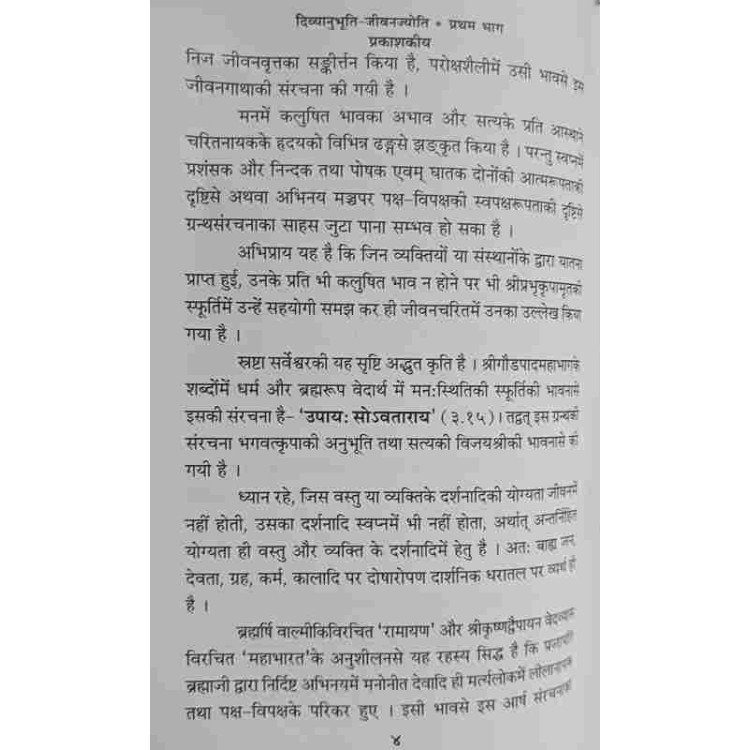 दिव्यानुभूति-जीवनज्योति • प्रथम भाग
प्रकाशकीय
निज जीवनवृत्तका सङ्कीर्त्तन किया है, परोक्षशैलीमें उसी भावसे इस
जीवनगाथाकी संरचना की गयी है ।
मनमें कलुषित भावका अभाव और सत्यके प्रति आस्थाने
चरितनायकके हृदयको विभिन्न ढङ्गसे झङ्कृत किया है । परन्तु स्वप्नमें
प्रशंसक और निन्दक तथा पोषक एवम् घातक दोनोंकी आत्मरूपताकी
दृष्टिसे अथवा अभिनय मञ्चपर पक्ष-विपक्षकी स्वपक्षरूपताकी दृष्टिसे
ग्रन्थसंरचनाका साहस जुटा पाना सम्भव हो सका है ।
अभिप्राय यह है कि जिन व्यक्तियों या संस्थानोंके द्वारा यातना
प्राप्त हुई, उनके प्रति भी कलुषित भाव न होने पर भी श्रीप्रभुकृपामृतकी
स्फूर्तिमें उन्हें सहयोगी समझ कर ही जीवनचरितमें उनका उल्लेख किया
गया है ।
स्रष्टा सर्वेश्वरकी यह सृष्टि अद्भुत कृति है । श्रीगौडपादमहाभागके
शब्दोंमें धर्म और ब्रह्मरूप वेदार्थ में मनःस्थितिकी स्फूर्तिकी भावनासे
इसकी संरचना है- 'उपायः सोऽवताराय' (३.१५) । तद्वत् इस ग्रन्थकी
संरचना भगवत्कृपाकी अनुभूति तथा सत्यकी विजयश्रीकी भावनासे की
गयी है ।
ध्यान रहे, जिस वस्तु या व्यक्तिके दर्शनादिकी योग्यता जीवनमें
नहीं होती, उसका दर्शनादि स्वप्नमें भी नहीं होता, अर्थात् अन्तर्निहित
योग्यता ही वस्तु और व्यक्ति के दर्शनादिमें हेतु है । अतः बाह्य जन,
देवता, ग्रह, कर्म, कालादि पर दोषारोपण दार्शनिक धरातल पर व्यर्थ ही
है ।
ब्रह्मर्षि वाल्मीकिविरचित 'रामायण' और श्रीकृष्णद्वैपायन वेदव्यास
विरचित 'महाभारत'के अनुशीलनसे यह रहस्य सिद्ध है कि प्रजापति
ब्रह्माजी द्वारा निर्दिष्ट अभिनयमें मनोनीत देवादि ही मर्त्यलोकमें लीलानायक
तथा पक्ष-विपक्षके परिकर हुए । इसी भावसे इस आर्ष संरचनाकी
४